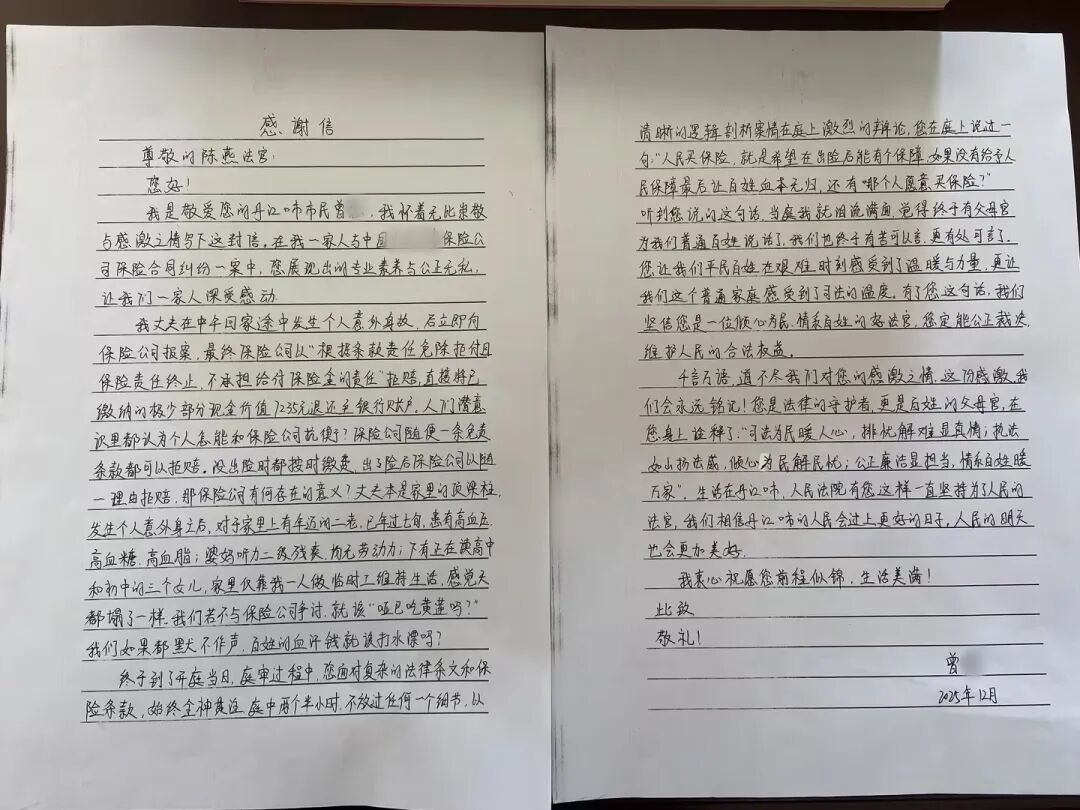 感谢信
尊敬的陈燕法官：
您好！
我是敬爱您的丹江口市市民曾，我怀着无比崇敬
与感激之情写下这封信。在我一家人与中国保险公
司保险合同纠纷一案中，您展现出的专业素养与公正无私，
让我们一家人深受感动。
我丈夫在中午回家途中发生个人意外身故，后立即向
保险公司报案，最终保险公司以“根据条款责任免除拒付且
保险责任终止，不承担给付保险金的责任”拒赔，直接将已
缴纳的极少部分现金价值7235元退还至银行账户，人们潜意
识里都认为个人怎能和保险公司抗衡？保险公司随便一条免责
条款都可以拒赔。没出险时都按时缴费，出了险后保险公司以随
一理由拒赔，那保险公司有何存在的意义？丈夫本是家里的顶梁柱，
发生个人意外身亡后，对于家里上有年迈的二老，已年过七旬，患有高血压、
高血糖、高血脂；婆妈听力二级残疾，均无劳动力；下有正在读高中
和初中的三个女儿，家里仅靠我一人做临时工维持生活，感觉天
都塌了一样。我们若不与保险公司争讨，就该“哑巴吃黄莲吗？”
我们如果都默不作声，百姓的血汗钱就该打水漂吗？
终于到了开庭当日，庭审过程中，您面对复杂的法律条文和保
险条款，始终全神贯注，庭中两个半小时，不放过任何一个细节，以
清晰的逻辑剖析案情在庭上激烈的辩论，您在庭上说过一
句：“人民买保险，就是希望在出险后能有个保障，如果没有给予人
民保障最后让百姓血本无归，还有哪个人愿意买保险？”
听到您说的这句话，当庭我就泪流满面，觉得终于有父母官
为我们普通百姓说话了，我们也终于有苦可以言，更有处可言了，
您让我们平民百姓在艰难时刻感受到了温暖与力量，更让
我们这个普通家庭感受到了司法的温度。有了您这句话，我们
坚信您是一位倾心为民、情系百姓的好法官，您定能公正裁决，
维护人民的合法权益。
千言万语，道不尽我们对您的感激之情，这份感激，我
们会永远铭记！您是法律的守护者，更是百姓的父母官，在
您身上诠释了：“司法为民暖人心，排忧解难显真情；执法
如山扬法威，倾心为民解民忧；公正廉洁显担当，情系百姓暖
万家”。生活在丹江口市，人民法院有您这样一直坚持为了人民的
法官，我们相信丹江口市的人民会过上更好的日子，人民的明天
也会更加美好。
我衷心祝愿您前程似锦，生活美满！
此致
敬礼！
曾
2025年12月